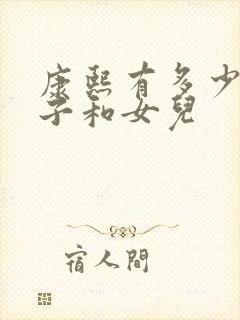 康熙有多少
子和女兒
宿人間